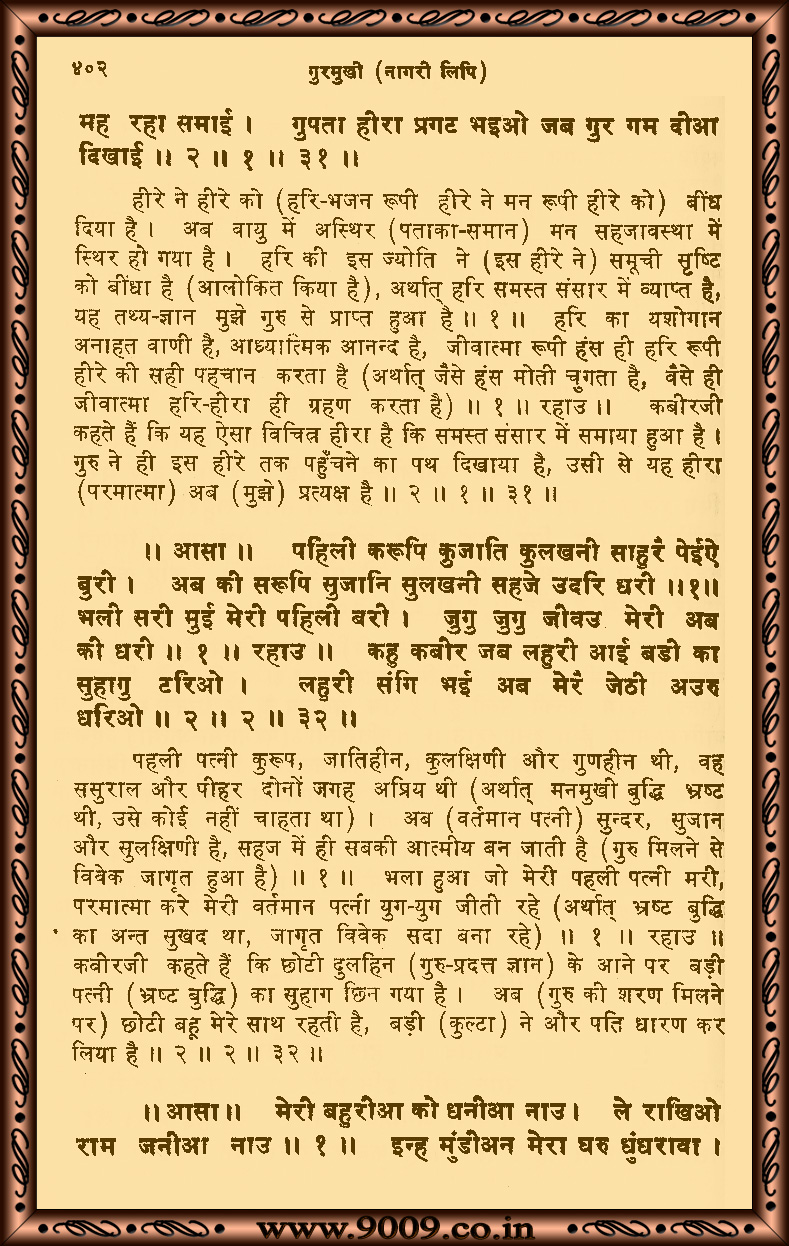 ४०२ गुरमुखी (नागरी लिपि)
मह रहा समाई । गुपता हीरा प्रगट भइओ जब गुर गम दीआ
दिखाई ॥ २ ॥ १ ॥ ३१ ॥
हीरे ने हीरे को (हरि-भजन रूपी हीरे ने मन रूपी हीरे को) बींध
दिया है । अब वायु में अस्थिर (पताका-समान) मन सहजावस्था में
स्थिर हो गया है । हरि की इस ज्योति ने (इस हीरे ने) समूची सृष्टि
को बींधा है (आलोकित किया है), अर्थात् हरि समस्त संसार में व्याप्त है,
यह तथ्य-ज्ञान मुझे गुरु से प्राप्त हुआ है ॥ १ ॥ हरि का यशोगान
अनाहत वाणी है, आध्यात्मिक आनन्द है, जीवात्मा रूपी हंस ही हरि रूपी
हीरे की सही पहचान करता है (अर्थात् जैसे हंस मोती चुगता है, वैसे ही
जीवात्मा हरि-हीरा ही ग्रहण करता है) ॥ १ ॥ रहाउ ॥ कबीरजी
कहते हैं कि यह ऐसा विचित्र हीरा है कि समस्त संसार में समाया हुआ है ।
गुरु ने ही इस हीरे तक पहुँचने का पथ दिखाया है, उसी से यह हीरा
(परमात्मा) अब (मुझे) प्रत्यक्ष है ॥ २ ॥ १ ॥ ३१ ॥
॥ आसा ॥ पहिली करूपि कुजाति कुलखनी साहुरै पेईऐ
बुरी । अब की सरूपि सुजानि सुलखनी सहजे उदरि धरी ॥१॥
भली सरी मुई मेरी पहिली बरी । जुगु जुगु जीवउ मेरी अब
की धरी ॥ १ ॥ रहाउ ॥ कहु कबीर जब लहुरी आई बडी का
सुहागु टरिओ । लहुरी संगि भई अब मेरै जेठी अउरु
धरिओ ॥ २ ॥ २ ॥ ३२ ॥
पहली पत्नी कुरूप, जातिहीन, कुलक्षिणी और गुणहीन थी, वह
ससुराल और पीहर दोनों जगह अप्रिय थी (अर्थात् मनमुखी बुद्धि भ्रष्ट
थी, उसे कोई नहीं चाहता था) । अब (वर्तमान पत्नी) सुन्दर, सुजान
और सुलक्षिणी है, सहज में ही सबकी आत्मीय बन जाती है (गुरु मिलने से
विवेक जागृत हुआ है) ॥ १ ॥ भला हुआ जो मेरी पहली पत्नी मरी,
परमात्मा करे मेरी वर्तमान पत्नी युग-युग जीती रहे (अर्थात् भ्रष्ट बुद्धि
का अन्त सुखद था, जागृत विवेक सदा बना रहे) ॥ १ ॥ रहाउ ॥
कबीरजी कहते हैं कि छोटी दुलहिन (गुरु-प्रदत्त ज्ञान) के आने पर बड़ी
पत्नी (भ्रष्ट बुद्धि) का सुहाग छिन गया है । अब (गुरु की शरण मिलने
पर) छोटी बहू मेरे साथ रहती है, बड़ी (कुल्टा) ने और पति धारण कर
लिया है ॥ २ ॥ २ ॥ ३२ ॥
॥ आसा ॥ मेरी बहुरीआ को धनीआ नाउ । ले राखिओ
राम जनीआ नाउ ॥ १ ॥ इन्ह मुंडीअन मेरा घरु धुंधरावा ।
www.9009.co.in